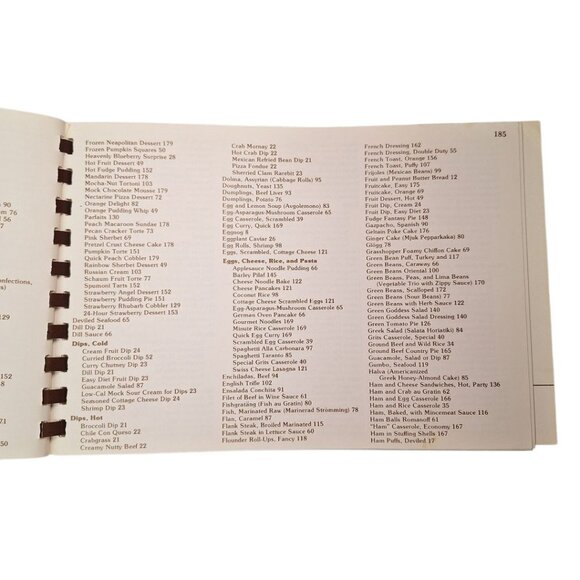 185
Frozen Neapolitan Dessert 179
Frozen Pumpkin Squares 50
Heavenly Blueberry Surprise 28
Hot Fruit Dessert 49
Hot Fudge Pudding 152
Mandarin Dessert 178
Mocha-Nut Tortoni 103
Mock Chocolate Mousse 179
Nectarine Pizza Dessert 72
Orange Delight 82
Orange Pudding Whip 49
Parfaits 130
Peach Macaroon Sundae 178
Pecan Cracker Torte 73
Pink Sherbet 69
Pretzel Crust Cheese Cake 178
Pumpkin Torte 151
Quick Peach Cobbler 179
Rainbow Sherbet Dessert 49
Russian Cream 103
Schaum Fruit Torte 77
Spumoni Tarts 152
Strawberry Angel Dessert 152
Strawberry Pudding Pie 151
Strawberry Rhubarb Cobbler 129
24-Hour Strawberry Dessert 153
Deviled Seafood 65
Dill Dip 21
Dill Sauce 66
Dips, Cold
Cream Fruit Dip 24
Curried Broccoli Dip 52
Curry Chutney Dip 23
Dill Dip 21
Easy Diet Fruit Dip 23
Guacamole Salad 87
Low-Cal Mock Sour Cream for Dips 23
Seasoned Cottage Cheese Dip 24
Shrimp Dip 23
Dips, Hot
Broccoli Dip 21
Chile Con Queso 22
Crabgrass 21
Creamy Nutty Beef 22
Crab Mornay 22
Hot Crab Dip 22
Mexican Refried Bean Dip 21
Pizza Fondue 22
Sherried Clam Rarebit 23
Dolma, Assyrian (Cabbage Rolls) 95
Doughnuts, Yeast 135
Dumplings, Beef Liver 93
Dumplings, Potato 76
Egg and Lemon Soup (Avgolemono) 83
Egg-Asparagus-Mushroom Casserole 65
Egg Casserole, Scrambled 39
Egg Curry, Quick 169
Eggnog 8
Eggplant Caviar 26
Egg Rolls, Shrimp 98
Eggs, Scrambled, Cottage Cheese 121
Eggs, Cheese, Rice, and Pasta
Applesauce Noodle Pudding 66
Barley Pilaf 145
Cheese Noodle Bake 122
Cheese Pancakes 121
Coconut Rice 98
Cottage Cheese Scrambled Eggs 121
Egg-Asparagus-Mushroom Casserole 65
German, Oven Pancake 66
Gourmet Noodles 169
Minute Rice Casserole 169
Quick Egg Curry 169
Scrambled Egg Casserole 39
Spaghetti Alla Carbonara 97
Spaghetti Taranto 85
Special Scrambled Eggs 40
Swiss Cheese Lasagne 121
Enchiladas, Beef 94
English Trifle 102
Ensalada Conchita 91
Filet of Beef in Wine Sauce 61
Fishgratäng (Fish au Gratin) 80
Fish, Marinated Raw (Marinerad Strömming) 78
Flan, Caramel 87
Flank Steak, Broiled Marinated 115
Flank Steak in Lettuce Sauce 60
Flounder Roll-Ups, Fancy 118
French Dressing 162
French Dressing, Double Duty 55
French Toast, Orange 156
French Toast, Puffy 107
Frijoles (Mexican Beans) 99
Fruit and Peanut Butter Bread 12
Fruitcake, Easy 175
Fruitcake, Orange 69
Fruit Dessert, Hot 49
Fruit Dip, Cream 24
Fruit Dip, Easy Diet 23
Fudge Fantasy Pie 148
Gazpacho, Spanish 90
Gelsuin Poke Cake 176
Ginger Cake (Mjuk Pepparkaka) 80
Glögg 78
Grasshopper Foamy Chiffon Cake 69
Green Bean Puff, Turkey and 117
Green Beans, Caraway 66
Green Beans Oriental 100
Green Beans, Peas, and Lima Beans
(Vegetable Trio with Zippy Sauce) 170
Green Beans, Scalloped 172
Green Beans (Sour Beans) 77
Green Beans with Cheese 171
Green Goddess Salad 140
Green Goddess Salad Dressing 140
Green Tomato Pie 126
Greek Salad (Salata Horiatiki) 84
Grits Casserole, Special 40
Ground Beef and Wild Rice 34
Ground Beef Country Pie 165
Guacamole, Salad or Dip 87
Gumbo, Seafood 119
Halva (Americanized
Greek Honey-Almond Cake) 85
Ham and Cheese Sandwiches, Hot, Party 136
Ham and Crab au Gratin 62
Ham and Egg Casserole 166
Ham and Rice Casserole 35
Ham, Baked, with Mincemeat Sauce 116
Ham Balls Romanoff 61
"Ham" Casserole, Economy 167
Ham in Stuffing Shells 167
Ham Puffs, Deviled 17